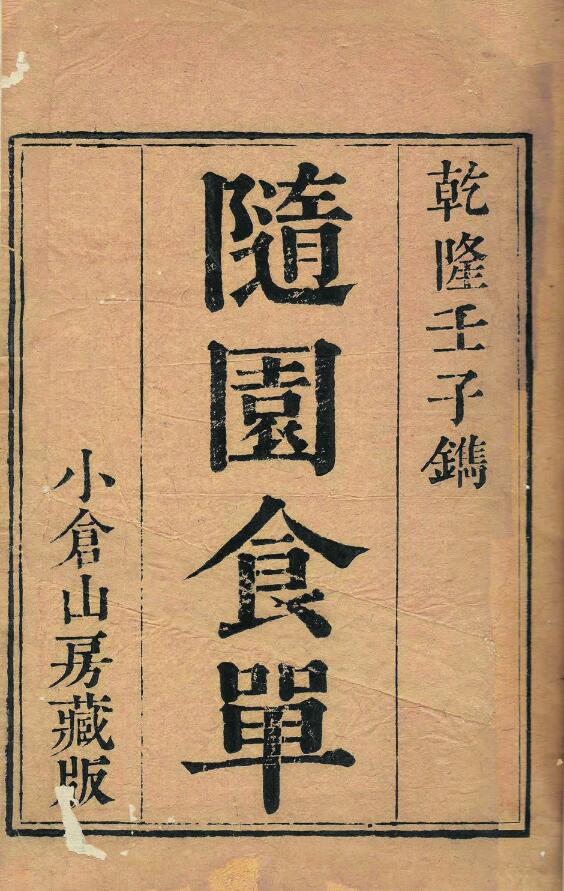 乾隆壬子鐫
隨園食單
小倉山房藏版